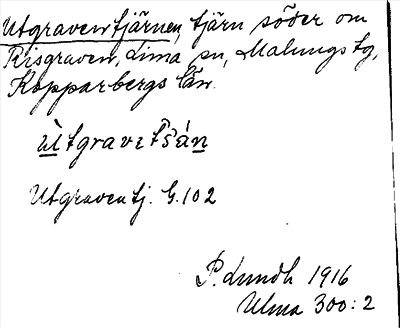 Utgravenstjärnen, tjärn söder om
Risgraven, Lima sn, Malungs tg,
Kopparbergs län.
ùtgravetšán
Utgraventj. G. 102
P. Lundh 1916
Ulma 300:2